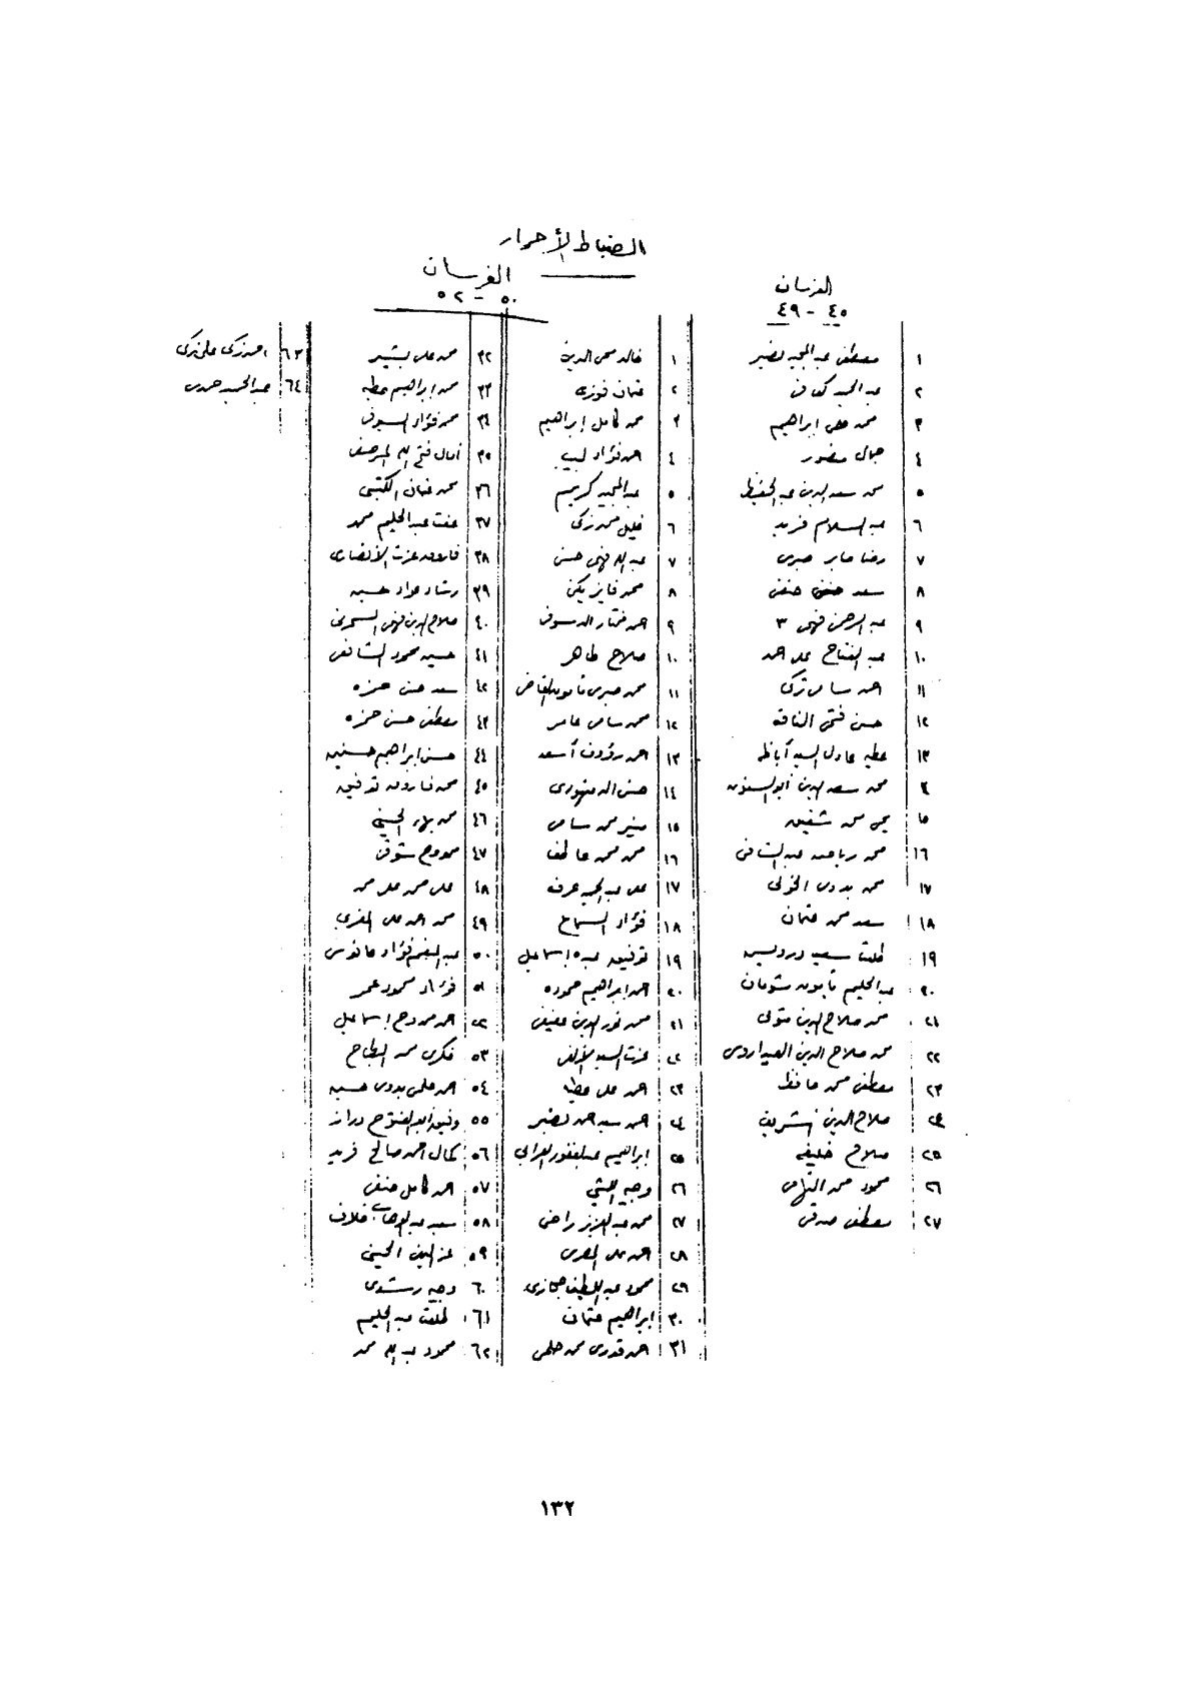 الضباط الأحرار
الفرسان
٤٥ - ٤٩
١ مصطفى عبد المجيد نصير
٢ عبد الحميد كفافى
٣ محمد ابراهيم
٤ جمال منصور
٥ محمد سعد الدين عبد الحفيظ
٦ عبد السلام فريد
٧ رضا صابر صبرى
٨ سعد حنفى حنفى
٩ عبد الرحمن فهمى ٣
١٠ عبد الفتاح على احمد
١١ احمد سامى تركى
١٢ حسن فتحى الناقة
١٣ عطيه عادل السيد أباظه
٤ محمد سعد الدين أبو السنون
١٥ يحيى محمد شفيق
١٦ محمد رياض عبد الشافى
١٧ محمد بدوى الخولى
١٨ سعد محمد عثمان
١٩ طلعت سعيد درويش
٢٠ عبد الحليم مأمون شومان
٢١ محمد صلاح الدين متولى
٢٢ محمد صلاح الدين العيداروسى
٢٣ مصطفى محمد حافظ
٢٤ صلاح الدين الشريف
٢٥ صلاح خليفه
٢٦ محمود محمد التهامى
٢٧ مصطفى صدقى
الفرسان
٥٠ - ٥٢
١ خالد محى الدين
٢ عثمان فوزى
٣ محمد كامل إبراهيم
٤ احمد فؤاد لبيب
٥ عبد المجيد كريم
٦ خليل محمد زكى
٧ عبد الله فهمى حسن
٨ محمد فايز يكن
٩ احمد مختار الدسوقى
١٠ صلاح طاهر
١١ محمد صبرى مأمون القاضى
١٢ محمد سامى عامر
١٣ احمد رؤوف أسعد
١٤ حسن الدمنهورى
١٥ منير محمد سامى
١٦ محمد محمد عاطف
١٧ على عبد الحميد عرفه
١٨ فؤاد السماح
١٩ توفيق عبده إسماعيل
٢٠ احمد إبراهيم حموده
٢١ محمد نور الدين عفيفى
٢٢ عزت السيد الألفى
٢٣ احمد على عطيه
٢٤ احمد سيد احمد نصير
٢٥ ابراهيم عبد الغفور العرابى
٢٦ وجيه
٢٧ محمد عبد العزيز راضى
٢٨ احمد على المصرى
٢٩ محمود عبد اللطيف حجازى
٣٠ إبراهيم عثمان
٣١ احمد قدرى محمد حلمى
٣٢ محمد على بشير
٣٣ محمد إبراهيم عطيه
٣٤ محمد فؤاد الدسوقى
٣٥ آمال فتح الله المرصفى
٣٦ محمد عثمان الكتبى
٣٧ عفت عبد الحليم محمد
٣٨ فاروق عزت الأنصارى
٣٩ رشاد مراد حسين
٤٠ صلاح الدين فهمى
٤١ حسين محمود الشافعى
٤٢ سعد حسن حمزه
٤٣ مصطفى حسن حمزه
٤٤ حسن ابراهيم حسنين
٤٥ محمد فاروق توفيق
٤٦ محمد بهاء الحسينى
٤٧ ممدوح شوقى
٤٨ على محمد على محمد
٤٩ محمد احمد على المغربى
٥٠ عبد المنعم فؤاد
٥١ فؤاد محمود عمر
٥٢ احمد ممدوح إسماعيل
٥٣ فكرى محمد البطاح
٥٤ احمد حلمى بدوى حسين
٥٥ وفيق ابو الفتوح دراز
٥٦ كمال احمد صالح فريد
٥٧ احمد كامل حنفى
٥٨ سيد عبد الوهاب خلاف
٥٩ عز الدين الحسينى
٦٠ وجيه رشدى
٦١ طلعت عبد الحليم
٦٢ محمود عبد الله محمد
٦٣ احمد زكى على زكى
٦٤ عبد الحميد حمدى
١٣٢